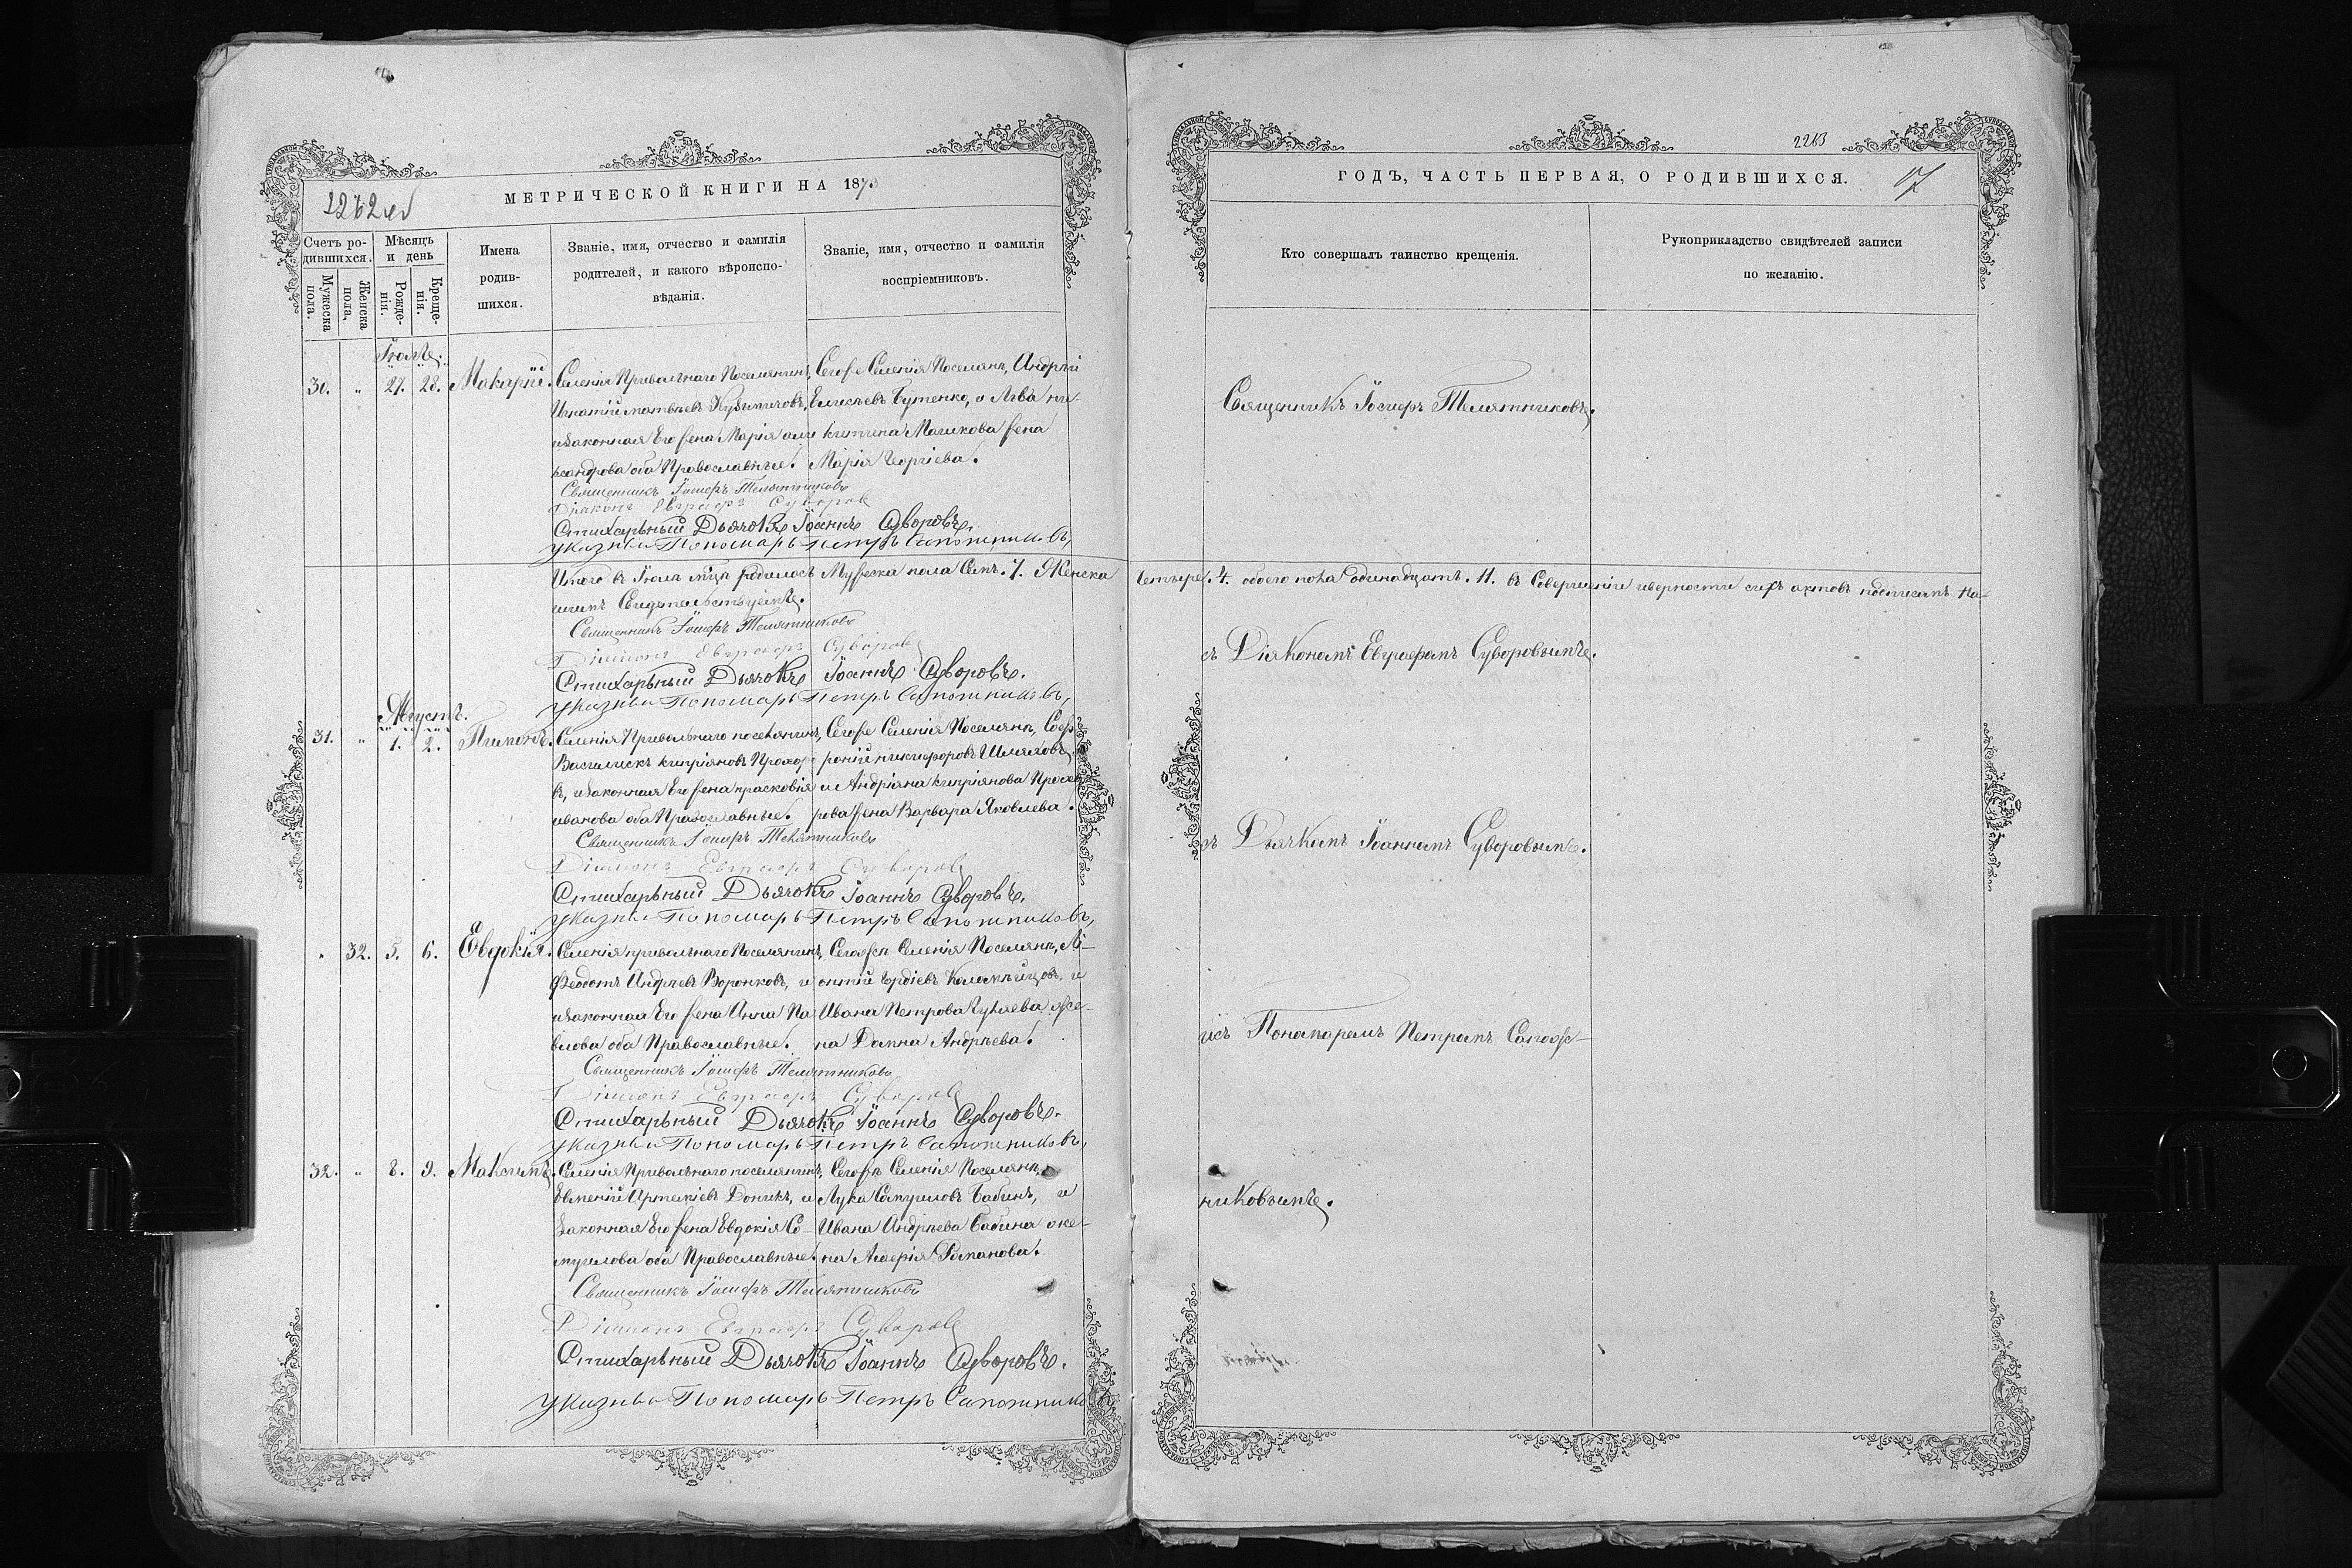 2262 об
МЕТРИЧЕСКОЙ КНИГИ НА 187
Счетъ ро-
дившихся.
Мужеска
пола.
Женска
пола.
Мѣсяцъ
и день
Рожде-
нія.
Креще-
нія.
Имена
родив-
шихся.
Званіе, имя, отчество и фамилія
родителей, и какого вѣроиспо-
вѣданія.
Званіе, имя, отчество и фамилія
воспріемниковъ.
Іюль
30. „ 27. 28. Макарій.
Селенія Привольнаго Поселянинъ,
Игнатій матвѣевъ
изаконная Его жена Марія але
ксандрова оба Православные.
Тогоже Селенія Поселянъ, Андрей
Елисѣевъ Бутенко, и Льва ни-
китина Машкова жена
Марія Георгіева.
Священникъ Іосифъ Телятниковъ
Діаконъ Евграфъ Суворовъ
Стихарьный Дьячокъ Іоаннъ Суворовъ.
указный Пономарь Петръ Сапожниковъ,
Итого въ Іюлѣ м͠цѣ родилось Мужеска пола Семь. 7. Женска
шимъ Свидѣтельствуемъ.
Священникъ Іосифъ Телятниковъ
Діаконъ Евграфъ Суворовъ
Стихарьный Дьячокъ Іоаннъ Суворовъ.
указный Пономарь Петръ Сапожниковъ,
Августъ.
31. „ 1. 2.
Селенія Привольнаго поселянинъ,
Василискъ кипріяновъ Прохоро
въ, изаконная Его жена прасковія
иванова оба Православные.
Тогоже Селенія Поселянъ, Соф
роній никифоровъ Шляховъ,
и Андріяна кипріянова Прохо
рова жена Варвара Яковлева.
Священникъ Іосифъ Телятниковъ
Діаконъ Евграфъ Суворовъ
Стихарьный Дьячокъ Іоаннъ Суворовъ.
указный Пономарь Петръ Сапожниковъ,
„ 32. 5. 6. Евдокія.
Селенія привольнаго Поселянинъ,
Феодотъ Андреевъ Воронковъ, и
изаконная Его жена Анна Па
влова оба Православные.
Тогоже Селенія Поселянъ, Ле-
онтій Гордіевъ и
Ивана Петрова Гуляева же-
на Домна Андреева.
Священникъ Іосифъ Телятниковъ
Діаконъ Евграфъ Суворовъ
Стихарьный Дьячокъ Іоаннъ Суворовъ.
указный Пономарь Петръ Сапожниковъ,
32. „ 8. 9. Максимъ.
Селенія Привольнаго поселянинъ,
Евменій Артеміевъ Доникъ, и
Законная Его жена Евдокія Са-
муилова оба Православные.
Тогоже Селенія Поселянъ,
Лука Самуиловъ Бабинъ, и
Ивана Андреева Бабина же-
на Романова.
Священникъ Іосифъ Телятниковъ
Діаконъ Евграфъ Суворовъ
Стихарьный Дьячокъ Іоаннъ Суворовъ.
указный Пономарь Петръ Сапожниковъ
2263
17
ГОДЪ, ЧАСТЬ ПЕРВАЯ, О РОДИВШИХСЯ.
Кто совершалъ таинство крещенія.
Рукоприкладство свидѣтелей записи
по желанію.
Священникъ Іосифъ Телятниковъ.
Четыре. 4. обоего пола одинадцать. 11. въ Совершеніи иверности сихъ актовъ подписомъ на-
съ Діякономъ Евграфомъ Суворовымъ.
съ Дьячкомъ Іоанномъ Суворовымъ.
исъ Понамаремъ Петромъ Сапож-
никовымъ.